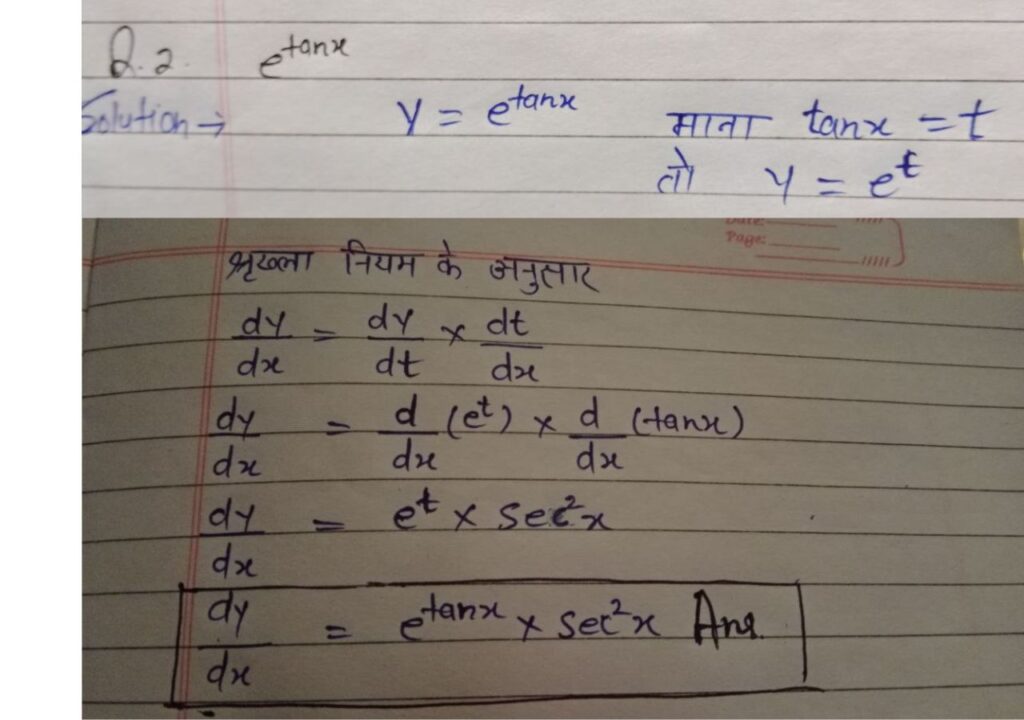 Q.2. e^tanx
Solution → y = e^tanx माना tanx = t
तो y = e^t
Date:
Page:
श्रृख्ला नियम के अनुसार
dy/dx = dy/dt × dt/dx
dy/dx = d/dx (e^t) × d/dx (tanx)
dy/dx = e^t × sec²x
dy/dx = e^tanx × sec²x Ans.